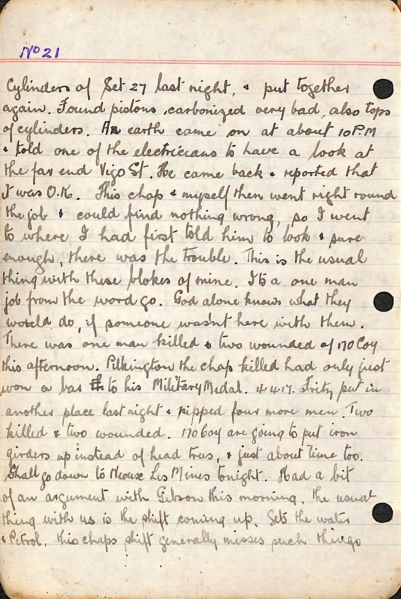 No 21
Cylinders of Set 27 last night, & put together
again. Found pistons carbonized very bad, also tops
of cylinders. An earth came on at about 10 P.M
& told one of the electricians to have a look at
the far end Vigo St. He came back & reported that
it was O.K. This chap & myself then went right round
the job & could find nothing wrong, so I went
to where I had first told him to look & sure
enough, there was the trouble. This is the usual
thing with these blokes of mine. Its a one man
job from the word go. God alone knows what they
would do, if someone wasn't here with them.
There was one man killed & two wounded of 170 Coy
this afternoon. Pilkington the chap killed had only just
won a bar to his Military Medal. 4.4.17. Fritz, put in
another place last night & nipped four more men. Two
killed & two wounded. 170 Coy are going to put iron
girders up instead of head trees, & just about time too.
Shall go down to Noeux Les Mines tonight. Had a bit
of an argument with Gibson this morning, the usual
thing with us is the shift coming up. Gets the water
& Petrol, this chaps shift generally misses such things